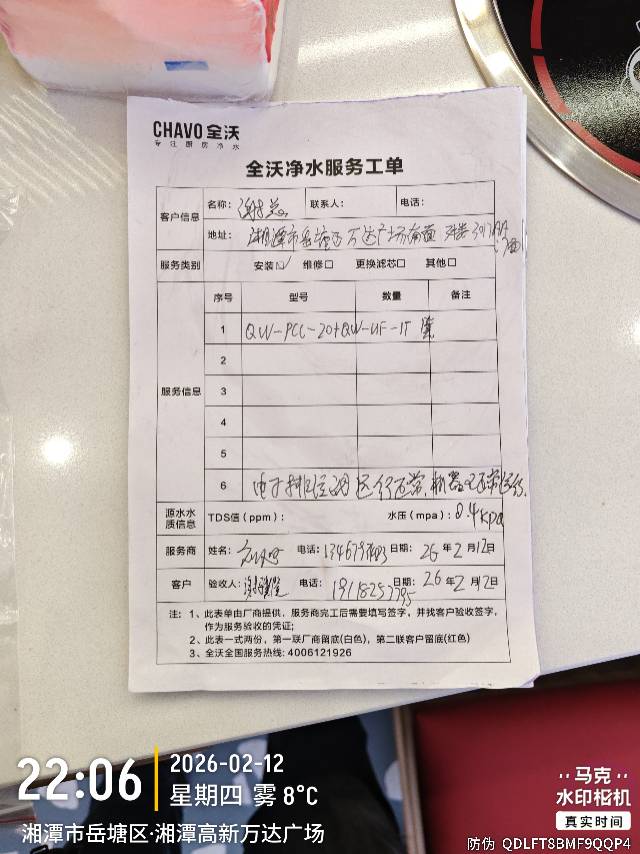 CHAVO 全沃
专注厨房净水
全沃净水服务工单
客户信息
名称: 谢总 联系人: 电话:
地址: 湘潭市岳塘区万达广场南
服务类别 安装☑ 维修口 更换滤芯口 其他口
服务信息
序号 型号 数量 备注
1 QW-PCC-20+QW-UF-1T
2
3
4
5
6 电子排 运行正常,机器正常运行.
源水水质信息 TDS值(ppm): 水压(mpa): 0.4kpa
服务商 姓名: 电话: 日期: 26年2月12日
客户 验收人: 电话: 19118257795 日期: 26年2月12日
注: 1、此表单由厂商提供,服务商完工后需要填写签字,并找客户验收签字,
作为服务验收的凭证;
2、此表一式两份,第一联厂商留底(白色),第二联客户留底(红色)
3、全沃全国服务热线: 4006121926
22:06
2026-02-12
星期四 雾 8°C
湘潭市岳塘区·湘潭高新万达广场
马克
水印相机
真实时间
防伪 QDLFT8BMF9QQP4